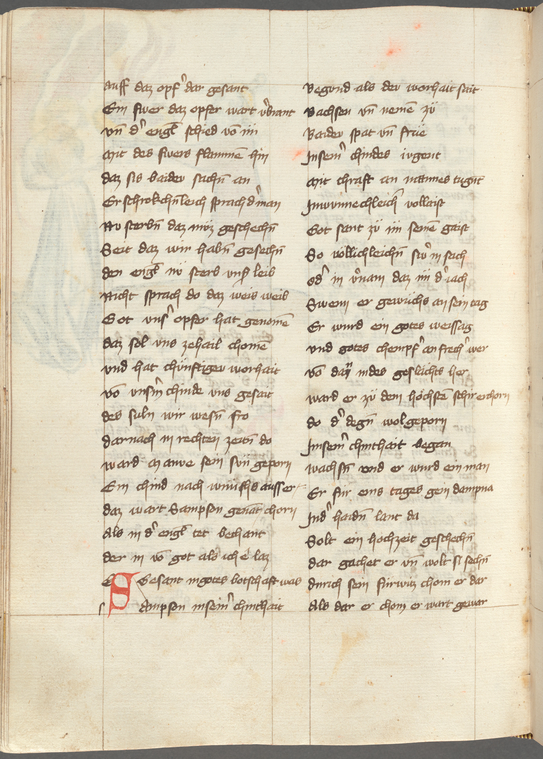 auff daz opf' dar gesant
Ein fwer daz opfer wart v'brant
vn̄ d' engl schied vō im
mit des fwers flammen hin
daz sis baider sachn̄ an
Erschrokchn̄leich sprach d' man
Nv sterbn̄ daz müz geschechn̄
Seit daz wir habn̄ gesechn̄
den engl nv sterb vnser leib
Nicht sprach do daz weis weib
Got vns' opfer hat genomē
daz sol vns zehail chomē
vnd hat chünftiger worhait
vō vnsm̄ chinde vns gesait
des suln wir wesn̄ fro
darnach in rechten zeitn̄ do
ward in sein sün geporn
Ein chind nach wunsch ausser
daz wart Sampson genāt chorn
Als in d' engl tet bechant
der in vō got als ich e laz
Gesant in gotes botschaft was
Sampson in sein' chinthait
Begond als der worhait sait
Wachsen vn̄ nemē zü
Baider spat vn̄ frue
In sein' chindes iugent
mit chraft an mannes tugnt
In wunnechleich vollaist
Got sant zü im seinē gaist
So völlichleichn̄ in sech
od' in daz im d' iach
Swem er gewuchs an sein tag
Er wurd ein gotes weissag
vnd gotes chempf' an frech' wer
vō dan indes geslachts her
ward er zü dem höchstn̄ schir erchorn
do d' degn̄ wol geporn
In sein' chinthait began
wachsn̄ vnd er wurd ein man
Er für ens tages gein dampna
In d' haidn̄ lant da
Solt ein hochzeit geschechn̄
dar gachet er vn̄ wolt si sechn̄
durch sein firwitz chom er dar
Als dar er chom er wart gewar